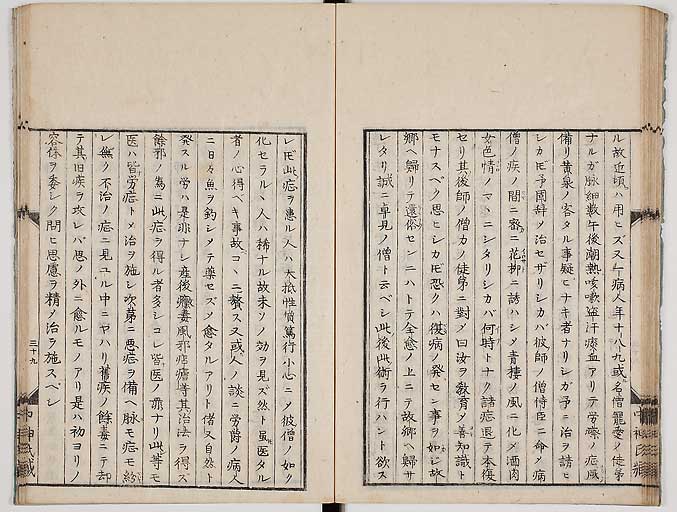 ル故近頃ハ用ヒズ又乍病人年十八九或名僧寵愛ノ徒弟
ナルガ脉細数午後潮熱咳嗽盗汗痰血アリテ労瘵ノ症咸
備リ黄泉ノ客タル事疑ヒナキ者ナリシガ予ニ治ヲ請ヒ
シカ𪜈予固辞ノ治セザリシカバ彼師ノ僧侍臣ニ命メ病
僧ノ疾ノ間ニ密ニ花柳ニ誘ハシメ青楼ノ風ニ化メ酒肉
女色情ノマヽニシタリシカバ何時トナク諸症退テ本復
セリ其後師ノ僧カノ徒弟ニ對メ曰汝ヲ教育メ善知識ト
モナスベク思ヒシカ𪜈恐クハ復病ノ発セン事ヲ如シ故
郷ヘ歸リテ還俗センニハトテ全愈ノ上ニテ故郷ヘ歸サ
レタリ誠ニ卓見ノ僧ト云ベシ此後此術ヲ行ハント欲ス
レ𪜈此症ヲ患ル人ハ大抵性質篤行小心ニメ彼僧ノ如ク
化セラルヽ人ハ稀ナル故未ソノ効ヲ見ズ然ト虽医タル
者ノ心得ベキ事故コヽニ贅ス又或人ノ談ニ労爵ノ病人
ニ日々魚ヲ釣シメテ薬セズメ愈タルアリト偖又自然ト
発スル労ハ是非ナシ産後癥毒風邪痘瘡等其治法ヲ得ズ
餘邪ノ為ニ此症ヲ得ル者多シコレ皆医ノ罪ナリ此等モ
医ハ皆労症トメ治ヲ施シ次第ニ悪症ヲ備ヘ脉モ症モ紛
レ無ク不治ノ症ニ見ユル中ニヤハリ舊疾ノ餘毒ニテ却
テ其旧疾ヲ攻レバ思ノ外ニ愈ルモノアリ是ハ初ヨリノ
容体ヲ委シク問ヒ思慮ヲ精メ治ヲ施スベシ
三十九